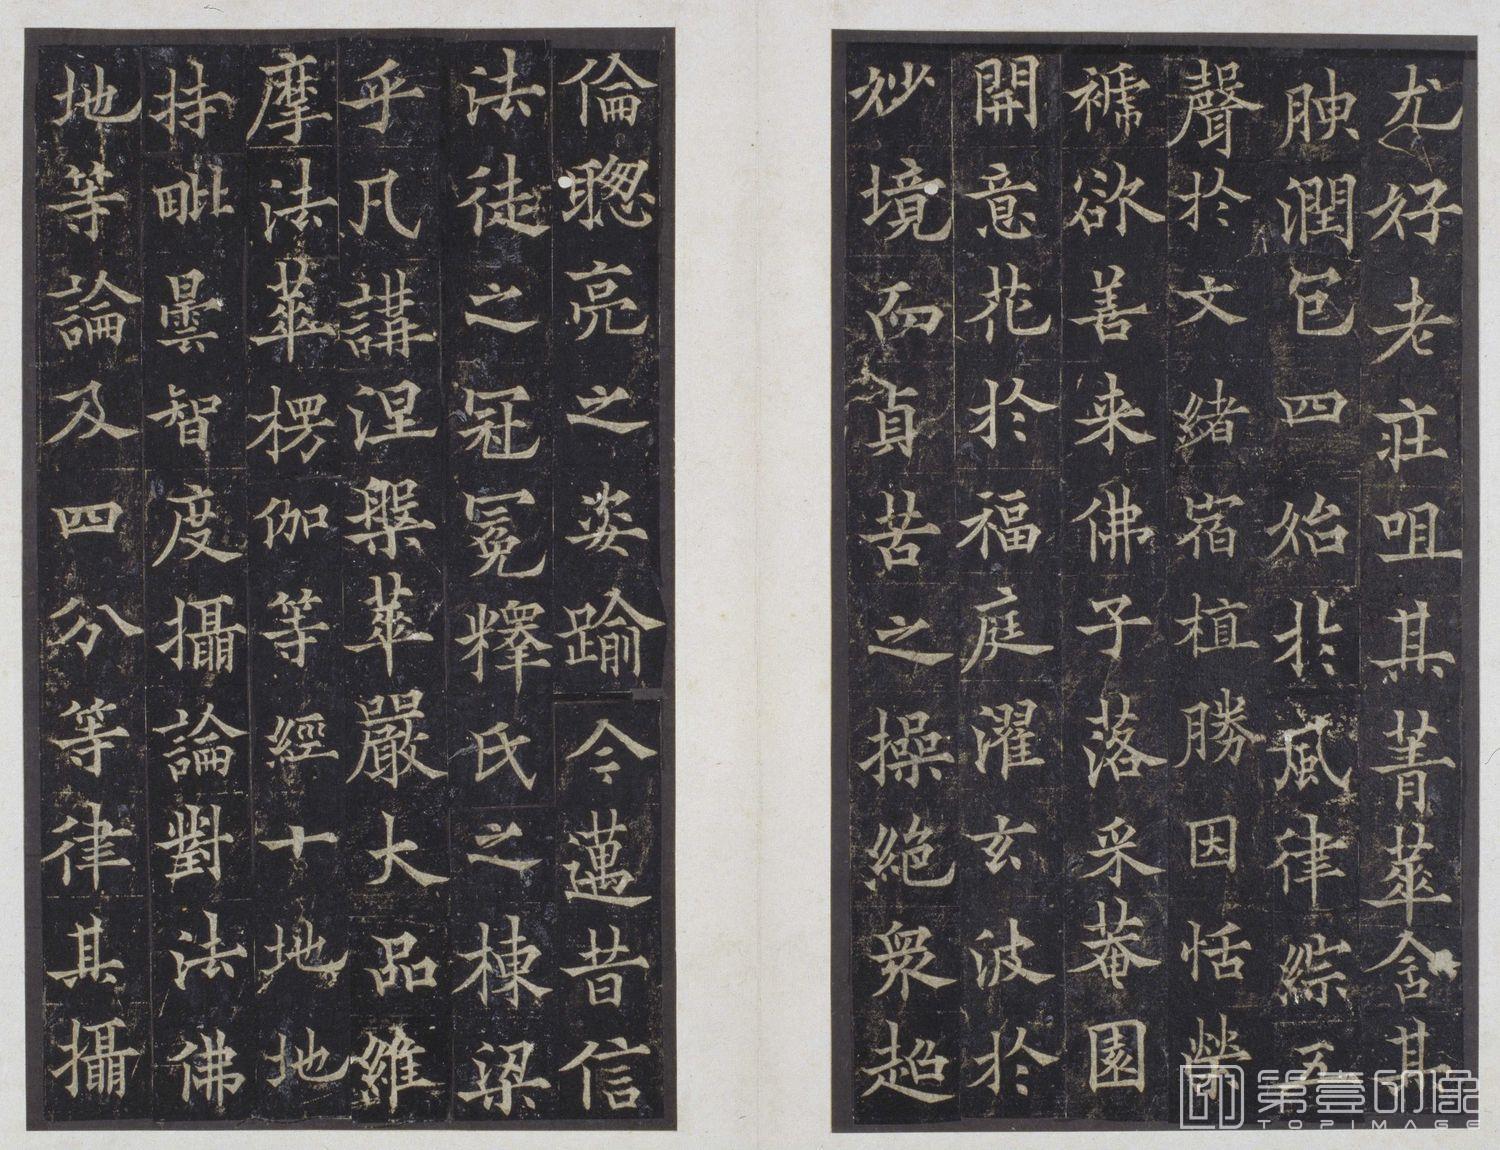 尤好老莊咀其菁華含其
腴潤包四始於風律綜五
聲於文緒宿植勝因恬榮
褫欲善来佛子落采菴園
開意花於福庭濯玄波於
妙境而貞苦之操絶衆超
倫聦亮之姿踰今邁昔信
法徒之冠冕釋氏之棟梁
乎凡講涅槃華嚴大品維
摩法華楞伽等經十地地
持毗曇智度攝論對法佛
地等論及四分等律其攝
第壹印象
TOPIMAGE